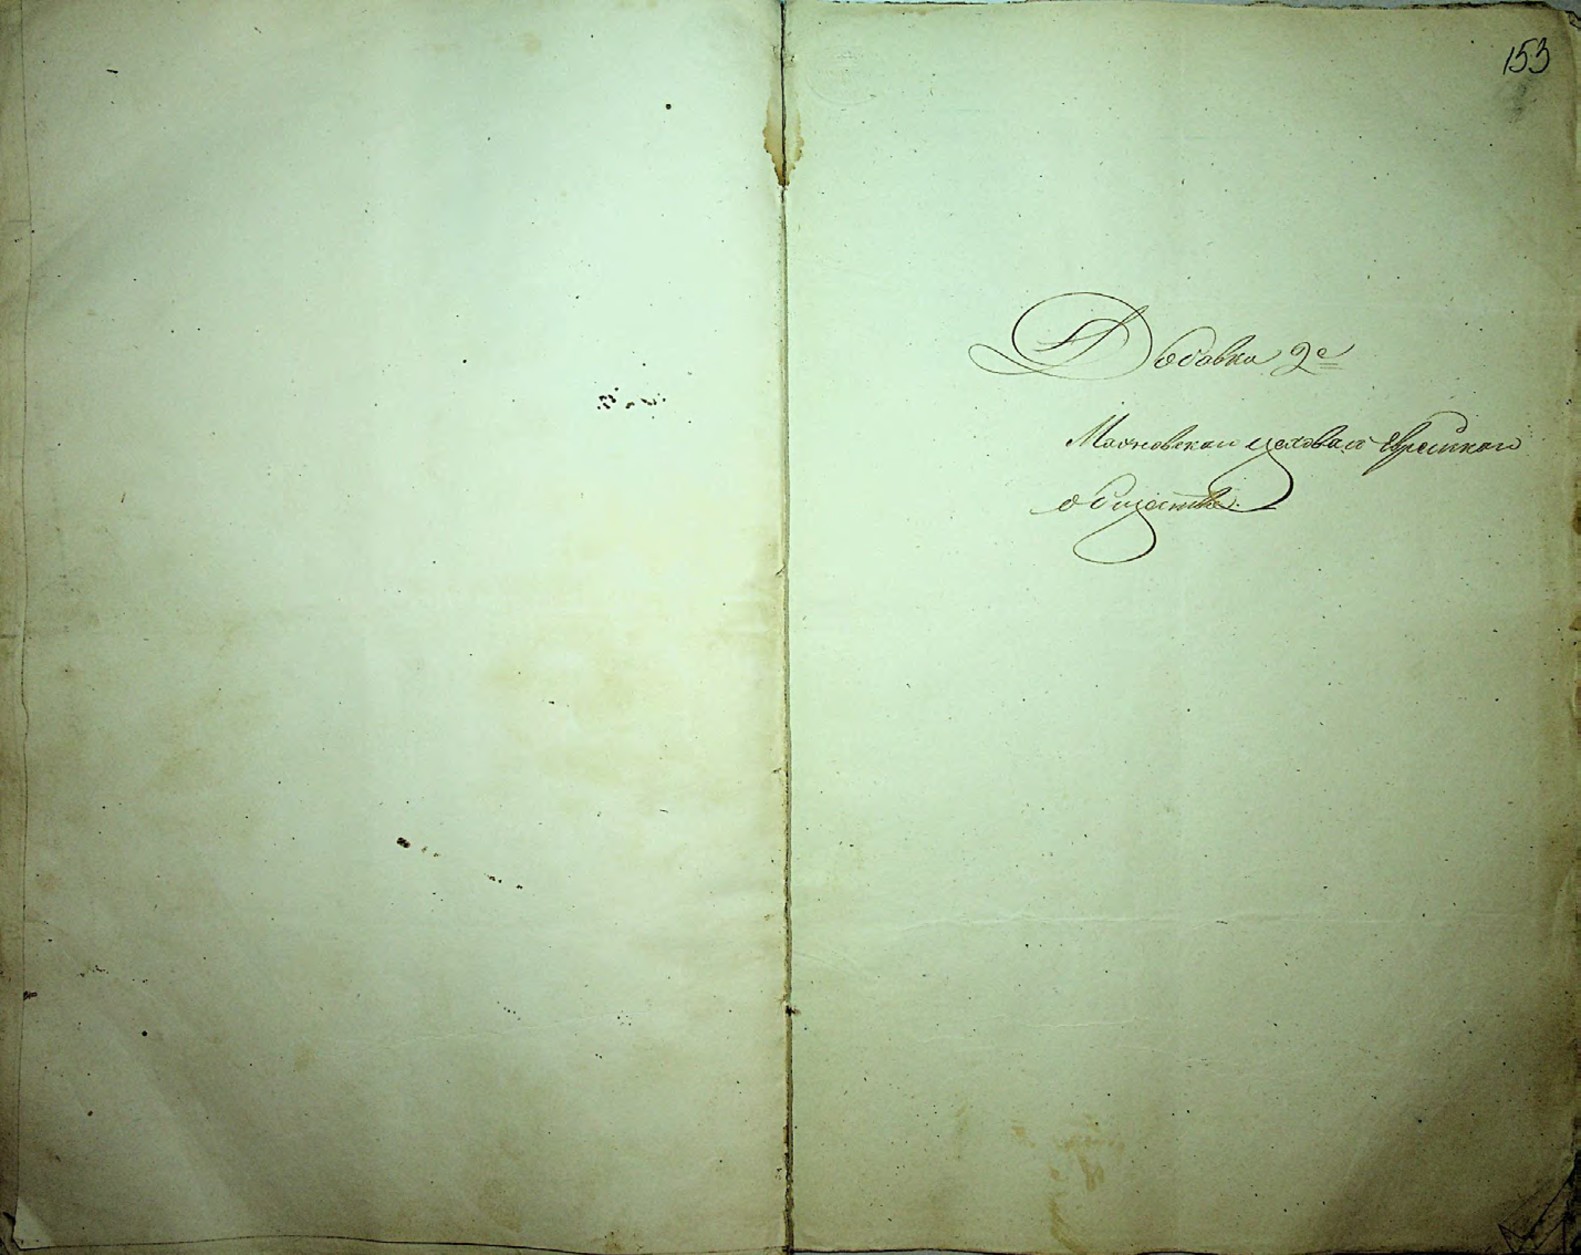 153
Добавка 2е
Махновскаго цеховаго Еврейскаго
общества.